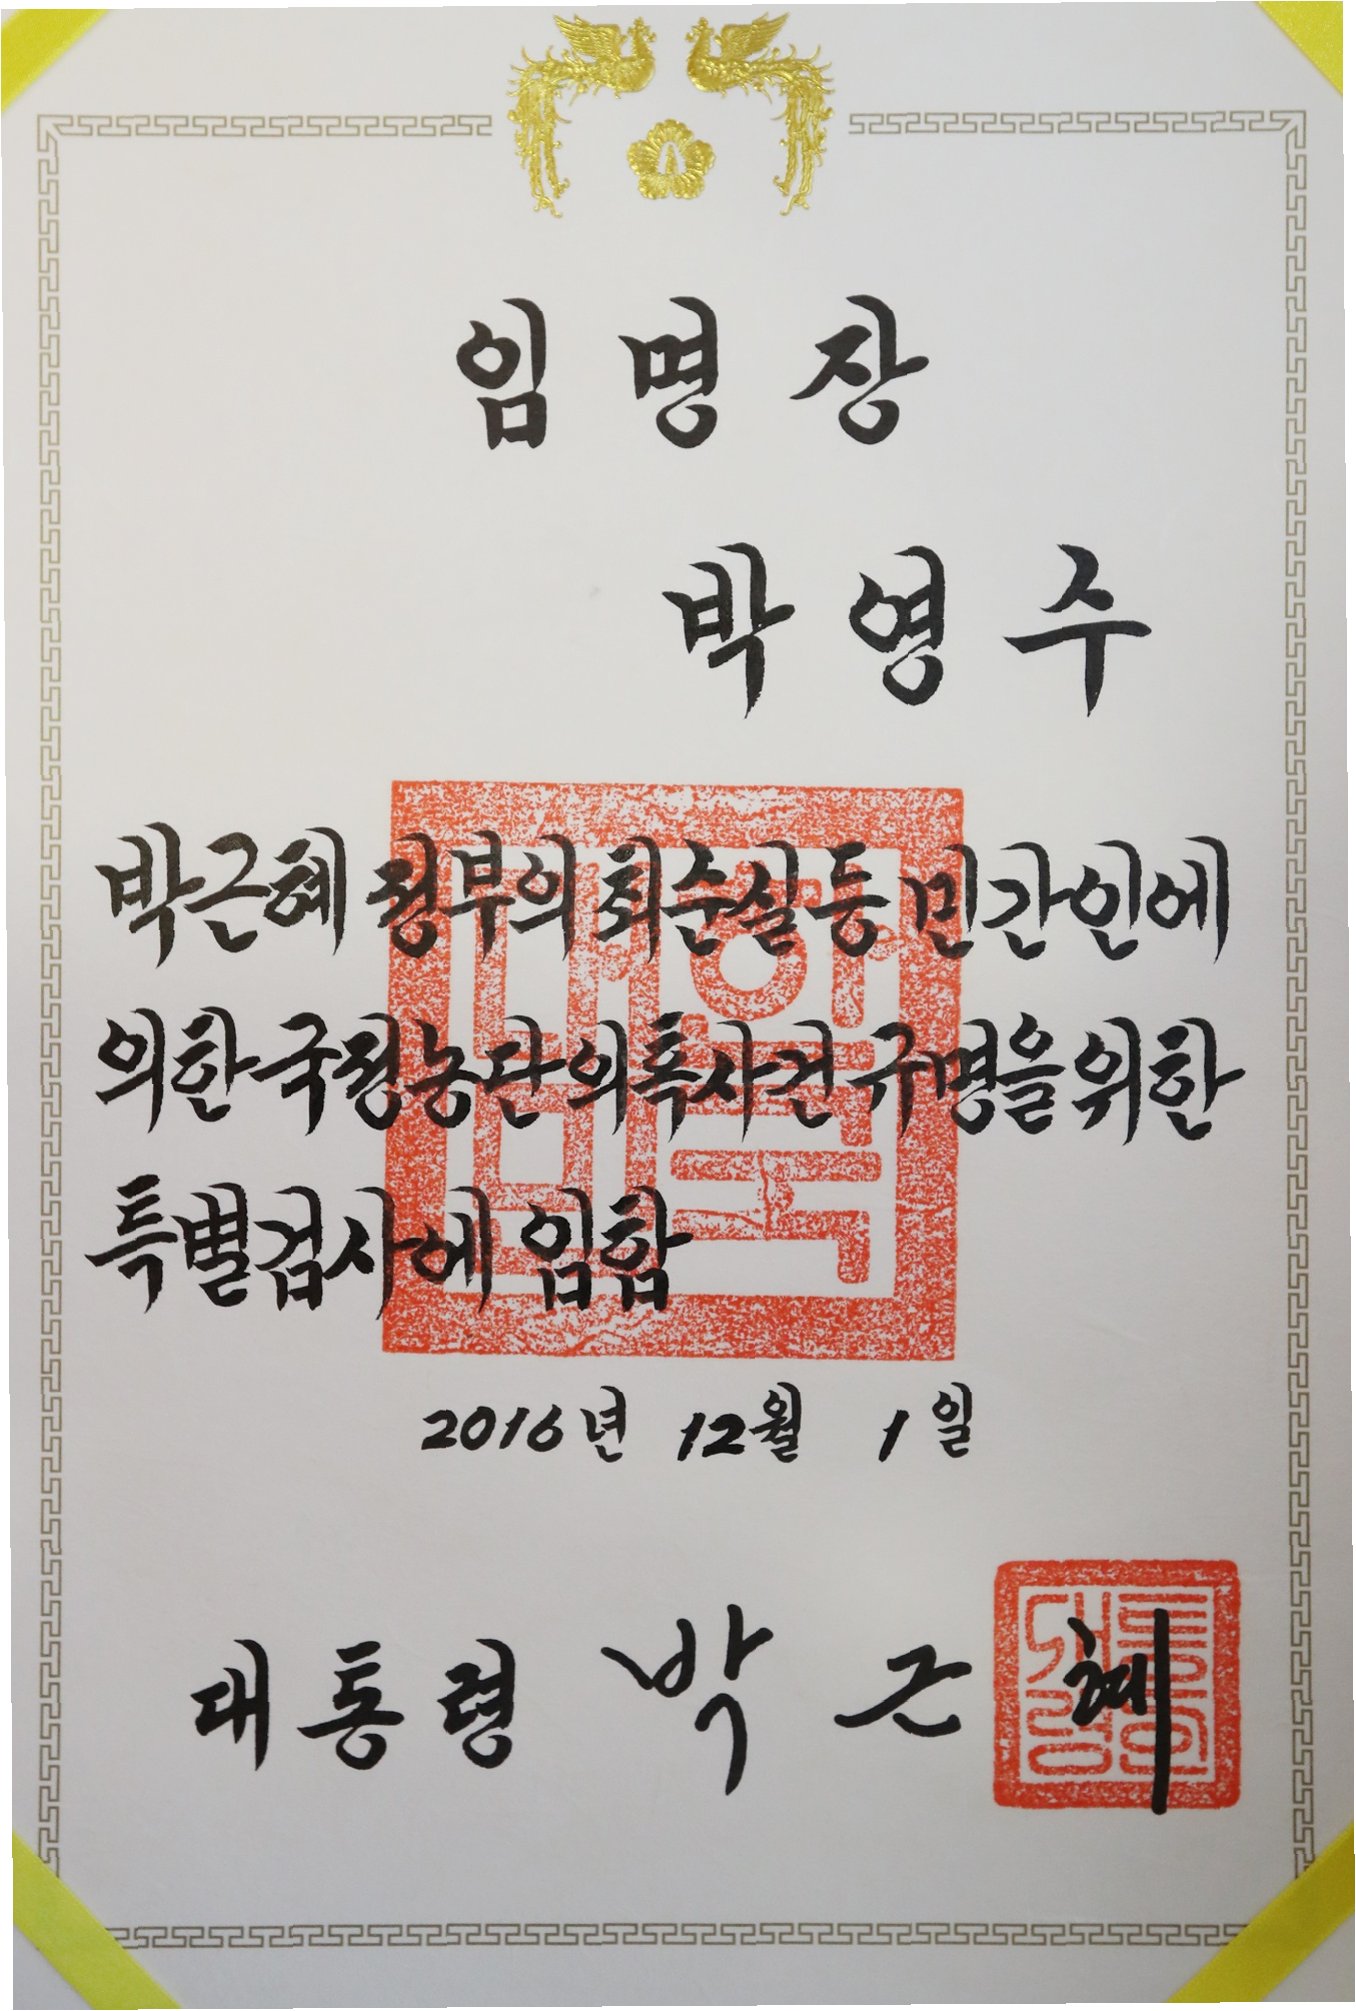 임명장
박영수
박근혜 정부의 최순실 등 민간인에
의한 국정농단 의혹사건 규명을 위한
특별검사에 임함
대한민국
2016년 12월 1일
대통령 박근혜